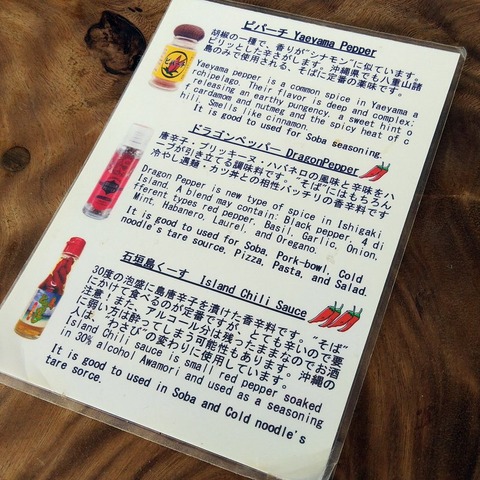 ピパーチ Yaeyama Pepper
胡椒の一種で、香りが“シナモン”に似ています。
ピリッとした辛さがします。沖縄県でも八重山諸
島のみで使用される、そばに定番の薬味です。
Yaeyama pepper is a common spice in Yaeyama a
rchipelago. Their flavor is deep and complex:
releasing an earthy pungency, a sweet hint o
f cardamom and nutmeg, and the spicy heat of c
hili. Smells like cinnamon.
It is good to used for Soba seasoning.
ドラゴンペッパー DragonPepper
唐辛子・プリッキーヌ・ハバネロの風味と辛味をハ
ーブが引き立てる調味料です。“そば”にはもちろん
冷やし過麺・カツ丼との相性バッチリの香辛料です
Dragon Pepper is new type of spice in Ishigaki
Island. A blend may contain: Black pepper, 4 di
fferent types red pepper, Basil, Garlic, Onion,
Mint, Habanero, Laurel, and Oregano.
It is good to used for Soba, Pork-bowl, Cold
noodle's tare source, Pizza, Pasta, and Salad.
石垣島くーす Island Chili Sauce
30度の泡盛に島唐辛子を漬けた香辛料です。“そば”
にかけて食べるのが定番ですが、とても辛いので要
注意!また、アルコール分は残ったままなのでお酒
に弱い方は酔ってしまう可能性もあります。沖縄の
人は、“わさび”の変わりに使用しています。
Island Chili sauce is small red pepper soaked
in 30% alcohol Awamori and used as a seasoning
It is good to used in Soba and Cold noodle's
tare sorce.